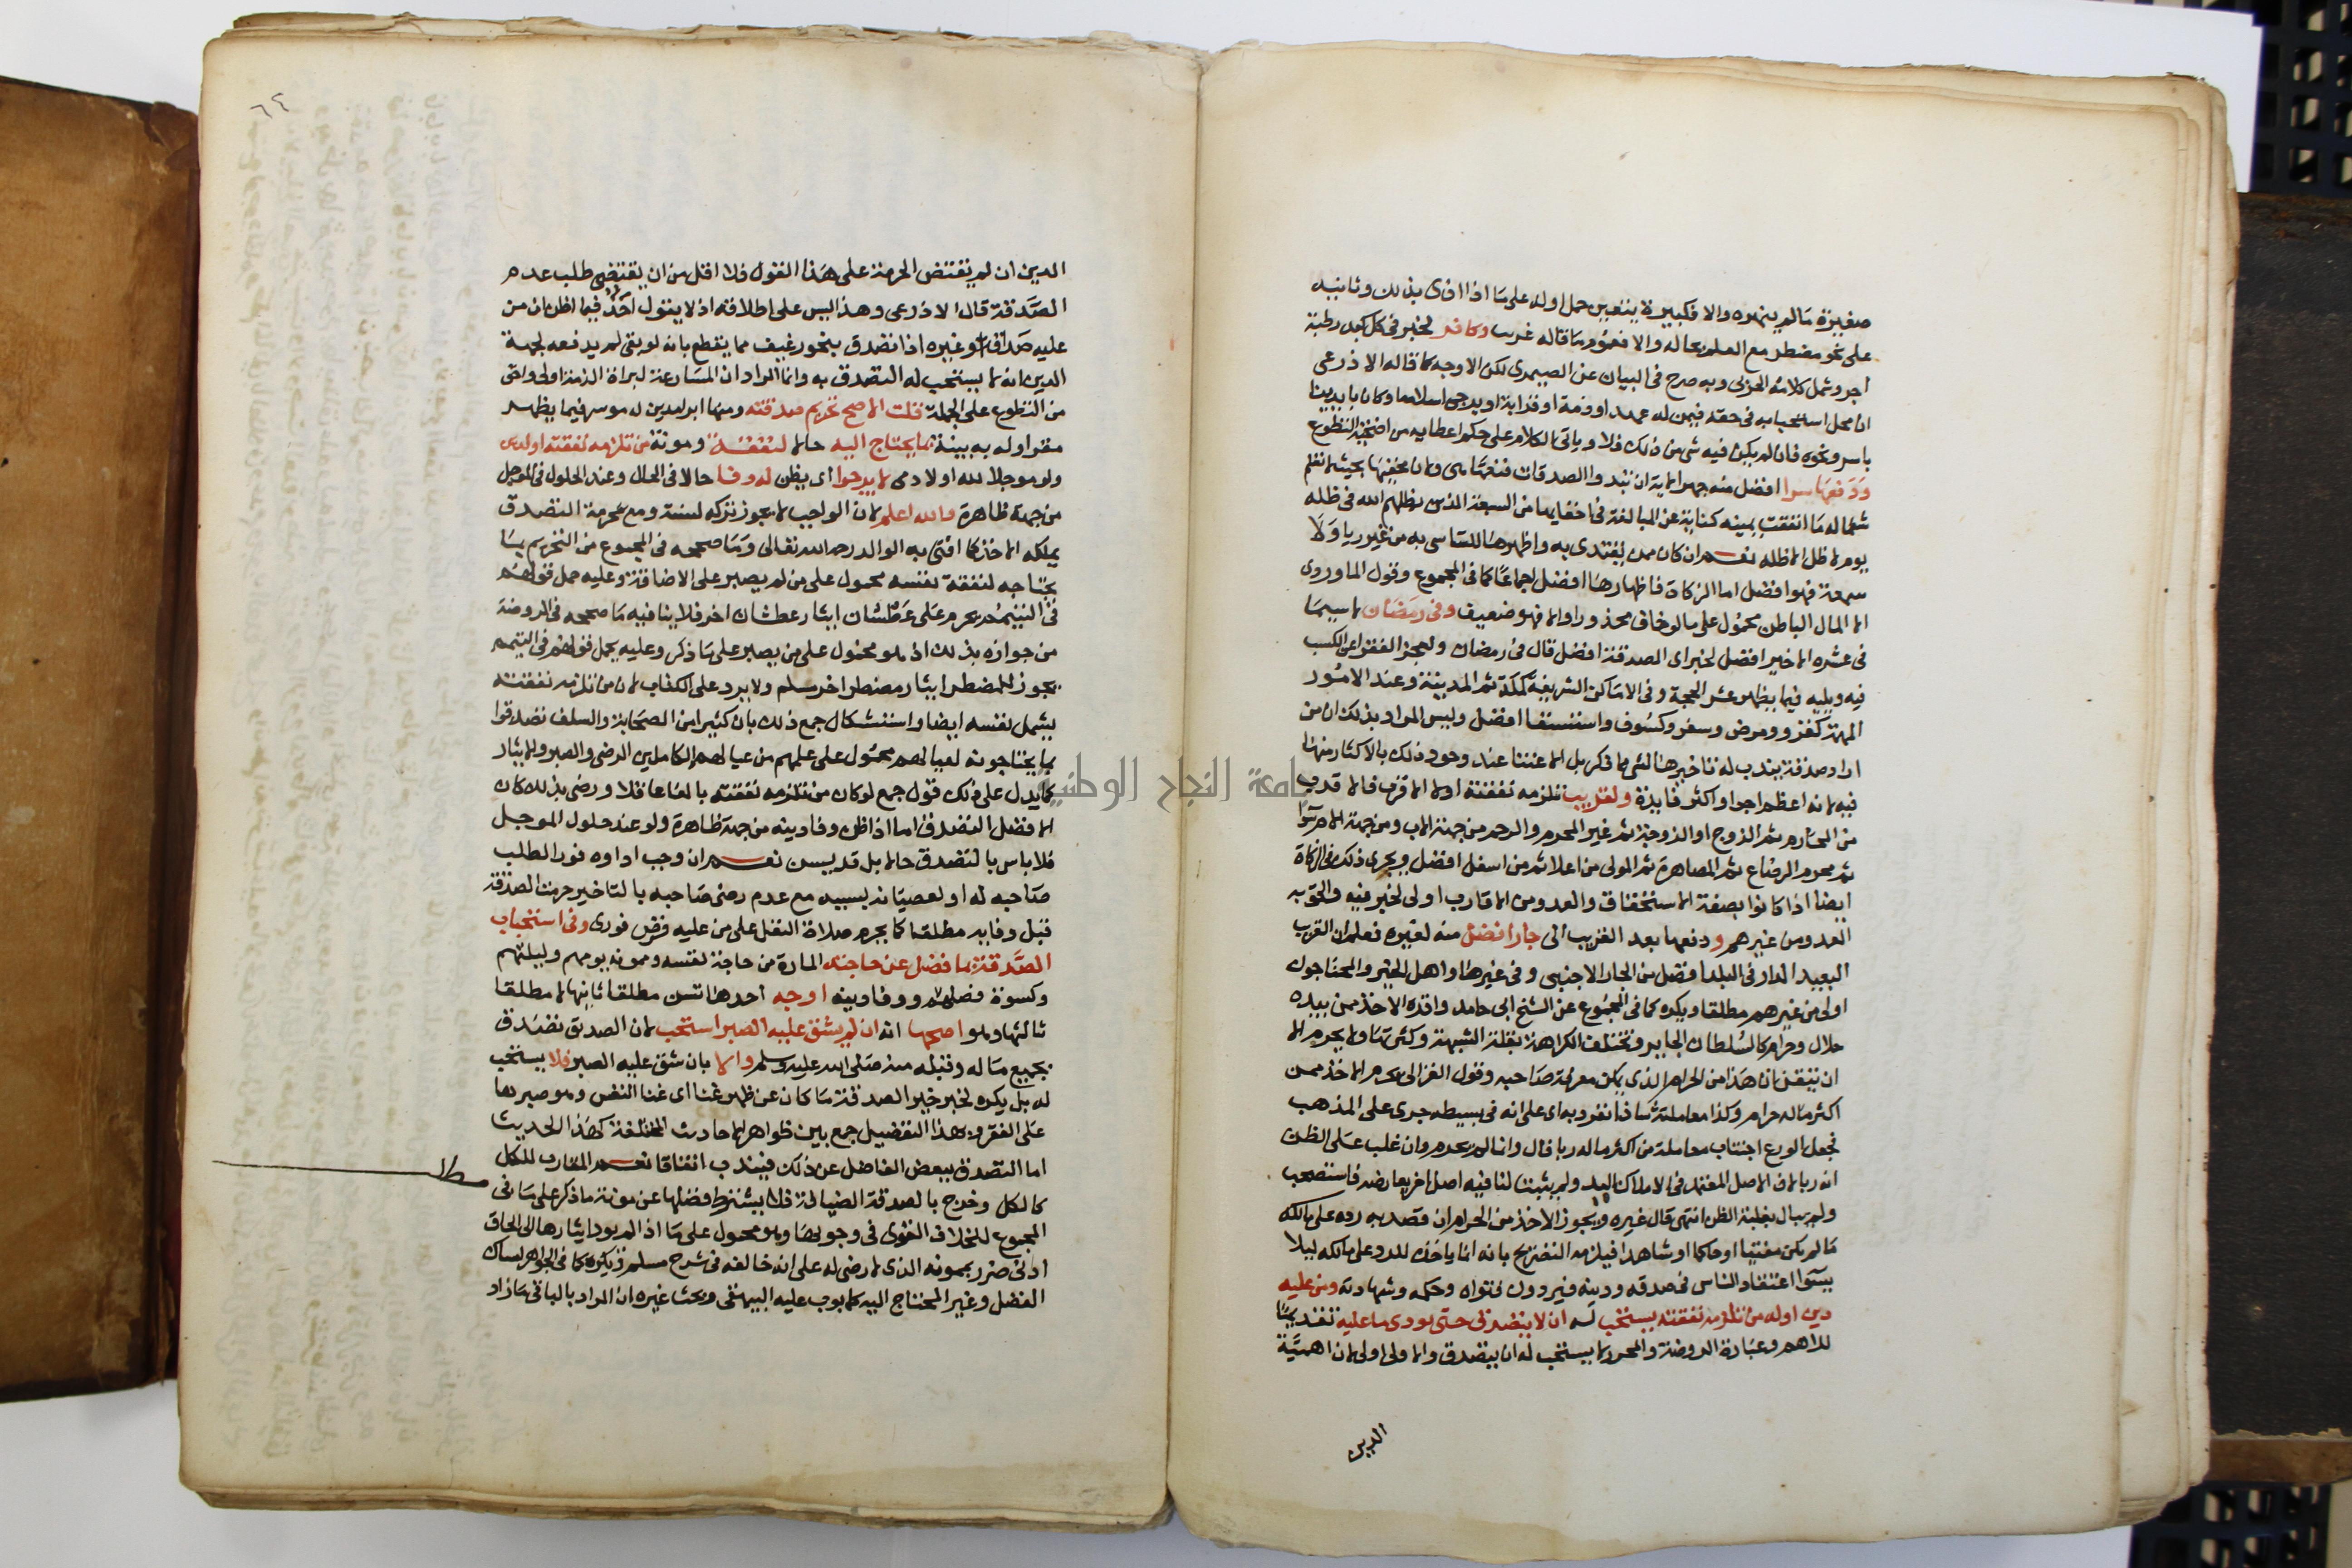 صغيرة ما لم ينهره والا فكبيرة لا يتعين حمل اوله على ما اذا اذى بذلك وثانيه
على نحو مضطر مع العلم بحاله والا فعموم ما قاله غريب وكافر لخبر في كل كبد رطبة
اجر وشمل كلامه الحربى وبه صرح في البيان عن الصيمرى لكن الاوجه كما قاله الاذرعى
ان محل استحبابه في حقه فيمن له عهد او ذمة او قرابة او يرجى اسلامه او كان بايدينا
باسر ونحوه فان لم يكن فيه شى من ذلك فلا وياتى الكلام على حكم اعطايه من اضحية التطوع
ودفعها سرا افضل منه جهرا لاية ان تبدوا الصدقات فنعما هى ولان مخفيها بحيث لا تعلم
شماله ما انفقت يمينه كناية عن المبالغة في اخفايها من السبعة الذين يظلهم الله في ظله
يوم لا ظل الا ظله نعم ان كان ممن يقتدى به واظهرها ليتاسى به من غير ريا ولا
سمعة فهو افضل اما الزكاة فاظهارها افضل اجماعا كما في المجموع وقول الماوردى
الا المال الباطن محمول على ما لو خاف محذورا والا فهو ضعيف وفى رمضان لا سيما
في عشره الاخير افضل لخبر اى الصدقة افضل قال في رمضان ولعجز الفقرا عن الكسب
فيه ويليه فيما يظهر عشر الحجة وفى الاماكن الشريفة كمكة ثم المدينة وعند الامور
المهمة كغزو ومرض وسفر وكسوف واستسقا افضل وليس المراد بذلك ان من
اراد صدقة يندب له تاخيرها لشى مما ذكر بل الاعتنا عند وجود ذلك بالاكثار منها
فيه لانه اعظم اجرا واكثر فايدة ولقريب تلزمه نفقته اولا الاقرب فالاقرب
من المحارم ثم الزوج او الزوجة ثم غير المحرم والرحم من جهة الاب ومن جهة الام سوا
ثم محرم الرضاع ثم المصاهرة ثم المولى من اعلا ثم من اسفل افضل ويجرى ذلك في الزكاة
ايضا اذا كانوا بصفة الاستحقاق والعدو من الاقارب اولى لخبر فيه والحق به
العدو من غيرهم ودفعها بعد القريب الى جار افضل منه لغيره فعلم ان القريب
البعيد الدار في البلد افضل من الجار الاجنبى وفى غيرها واهل الخير والمحتاجون
اولى من غيرهم مطلقا ويكره كما في المجموع عن الشيخ ابى حامد واقره الاخذ ممن بيده
حلال وحرام كالسلطان الجاير وتختلف الكراهة بقلة الشبهة وكثرتها ولا يحرم الا
ان تيقن ان هذا من الحرام الذى يمكن معرفة صاحبه وقول الغزالى يحرم الاخذ ممن
اكثر ماله حرام وكذا معاملته شاذ انفرد به اى على انه في بسيطه جرى على المذهب
فجعل الورع اجتناب معاملة من اكثر ماله ربا قال وانما لم يحرم وان غلب على الظن
انه ربا لان الاصل المعتمد في الاملاك اليد ولم يثبت لنا فيه اصل اخر يعارضه فاستصحب
ولم يبال بغلبة الظن انتهى قال غيره ويجوز الاخذ من الحرام ان قصد به رده على مالكه
ما لم يكن مفتيا او حاكما او شاهدا فيلزمه التصريح بانه انما ياخذه للرد على مالكه ليلا
يسوا اعتقاد الناس في صدقه ودينه فيردون فتواه وحكمه وشهادته ومن عليه
دين او له من تلزمه نفقته يستحب له ان لا يتصدق حتى يودى ما عليه تقديما
للاهم وعبارة الروضة والمحرر لا يستحب له ان يتصدق والاولى اولى لان اهمية
الدين
٦٤
الدين ان لم يقتض الحرمة على هذا القول فلا اقل من ان يقتضى طلب عدم
الصدقة قال الاذرعى وهذا ليس على اطلاقه اذ لا يقول احد فيما اظن ان من
عليه صداق او غيره اذا تصدق بنحو رغيف مما يقطع بانه لو بقى لم يدفعه لجهة
الدين انه لا يستحب له التصدق به وانما المراد ان المسارعة لبراة الذمة اولى واحق
من التطوع على الجملة قلت الاصح تحريم صدقته ومنها ابرا مدين له موسر فيما يظهر
مقر او له به بينة بما يحتاج اليه حالا لنفقة ومونة من تلزمه نفقته او لدين
ولو موجلا لله او لادمى لا يرجوا اى يظن له وفا حالا في الحال وعند الحلول في الموجل
من جهة ظاهرة والله اعلم لان الواجب لا يجوز تركه لسنة ومع حرمة التصدق
يملكه الاخذ كما افتى به الوالد رحمه الله تعالى وما صححه في المجموع من التحريم بما
يحتاجه لنفقة نفسه محمول على من لم يصبر على الاضاقة وعليه حمل قولهم
في التيمم يحرم على عطشان ايثار عطشان اخر فلا ينافيه ما صححه في الروضة
من جوازه بذلك اذ هو محمول على من يصبر على ما ذكر وعليه يحمل قولهم في التيمم
يجوز للمضطر ايثار مضطر اخر مسلم ولا يرد على الكتاب لان من تلزمه نفقته
يشمل نفسه ايضا واستشكال جمع ذلك بان كثيرا من الصحابة والسلف تصدقوا
بما يحتاجونه لعيالهم محمول على علمهم من عيالهم الكاملين الرضى والصبر والايثار
كما يدل على ذلك قول جمع لو كان من تلزمه نفقته بالغا عاقلا ورضى بذلك كان
الافضل التصدق اما اذا ظن وفا دينه من جهة ظاهرة ولو عند حلول الموجل
فلا باس بالتصدق حالا بل قد يسن نعم ان وجب اداوه فورا لطلب
صاحبه له او لعصيانه بسببه مع عدم رضى صاحبه بالتاخير حرمت الصدقة
قبل وفايه مطلقا كما يحرم صلاة النفل على من عليه فرض فورى وفى استحباب
الصدقة بما فضل عن حاجته المارة من حاجة نفسه وممونه يومهم وليلتهم
وكسوة فصلهم ووفا دينه اوجه احدها تسن مطلقا ثانيها لا مطلقا
ثالثها وهو اصحها انه ان لم يشق عليه الصبر استحب لان الصديق تصدق
بجميع ماله وقبله منه صلى الله عليه وسلم والا بان شق عليه الصبر فلا يستحب
له بل يكره لخبر خير الصدقة ما كان عن ظهر غنا اى غنا النفس وهو صبرها
على الفقر وبهذا التفصيل جمع بين ظواهر الاحاديث المختلفة كهذا الحديث
اما التصدق ببعض الفاضل عن ذلك فيندب اتفاقا نعم المقارب للكل
كالكل وخرج بالصدقة الضيافة فلا يشترط فضلها عن مونة ما ذكر على ما في
المجموع للخلاف القوى في وجوبها وهو محمول على ما اذا لم يود ايثارها الى الحاق
ادنى ضرر بممونه الذى لا رضى له على انه خالفه في شرح مسلم ويكره كما في الجواهر امساك
الفضل وغير المحتاج اليه كما بوب عليه البيهقى وبحث غيره ان المراد بالباقى ما زاد
جامعة النجاح الوطنية